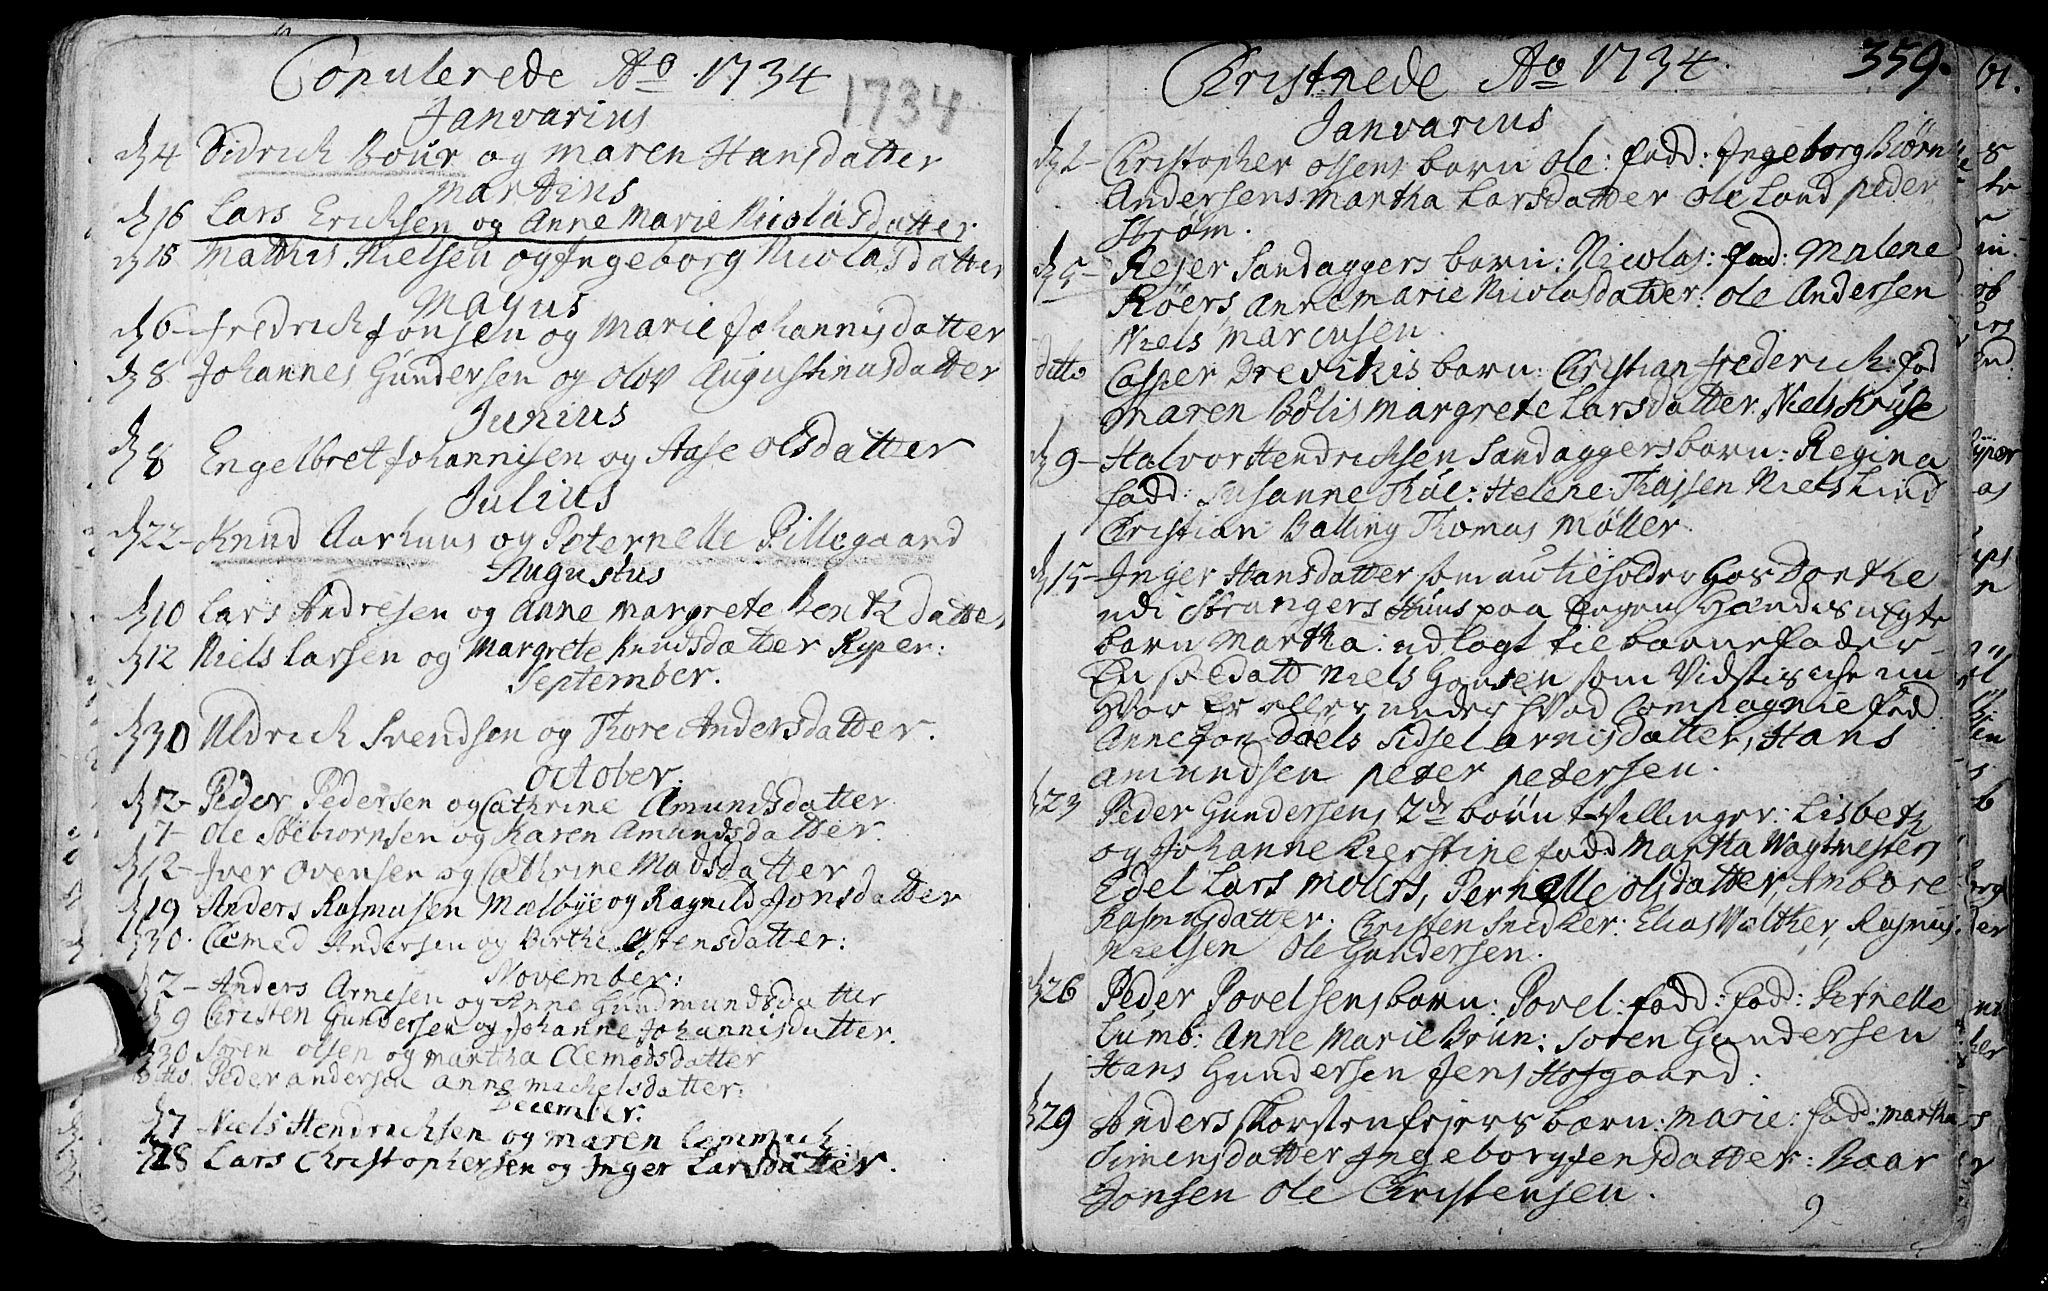 Copulerede Ao 1734
1734
Janvarius
d 4 Didrich Bour og Maren Hansdatter
Martius
d 16 Lars Ericksen og Anne Marie Nicolasdatter
d 18 Mathis Nielsen og Ingeborg Nicolasdatter
Mayus
d 6 Fredrich Jonsen og Marie Johannisdatter
d 8 Johannes Gundersen og Olov Augustinusdatter
Junius
d 8 Engelbret Johannisen og Aase Olsdatter
Julius
d 22 Knud Aarhuus og Peternelle Pillegaard
Augustus
d 10 Lars Andresen og Anne Margrete Bentzdatter
d 12 Niels Larsen og Margrete Knudsdatter Ryper:
September.
d 30 Uldrich Svendsen og Thore Andersdatter.
October.
d 12 Peder Pedersen og Cathrine Amundsdatter
17 Ole Söebiornsen og Karen Amundsdatter.
d 12 Iver Ovensen og Cathrine Madsdatter
d 19 Anders Rasmusen Mælbye og Ragnild Jonsdatter
30. Clemed Andersen og Birthe Ostensdatter:
November:
d 2 Anders Arnesen og Anne Gudmundsdatter
d 9 Christen Gundersen og Johanne Johannisdatter.
d 30 Soren Olsen og Martha Clemedsdatter
ditto. Peder Andersen Anne Mickelsdatter:
December:
d 7 Niels Hendrichsen og Maren Lemmich
28 Lars Christophersen og Inger Larsdatter.
Christnede Ao 1734. 359.
Janvarius
d 2 Christopher Olsens barn Ole: fadd: Ingeborg Biørn
Andersens Martha Larsdatter Ole Lond Peder
Strøm.
d 5 Rejer Sandaggers barn: Nicolas: fad: Malene
Røers, Anne Marie Nicolasdatter: Ole Andersen
Niels Marcusen.
ditto Casper Drevikis barn: Christian Frederich: fad
Maren Bolis Margrete Larsdatter. Niels Kruse
d 9 Halvor Hendrichsen Sandaggers barn: Regina
fadd: Susanne Thue: Helene Thajsen Niels Lind
Christian Balling Thomas Møller.
d 15 Inger Hansdatter som nu tilholder hos Dorthe
udi Strangers Huus paa Engen hendis uegte
barn Martha: udlagt til barnefader
En Soldatt Niels Hansen som Vidstis iche nu
hvor Er eller under hvad Compagnie fad
Anne Jon Dæls Sidsel Arnisdatter, Hans
Amundsen Peter Petersen.
d 23 Peder Gundersens 2de børn Tvillinger: Lisbetz
og Johanne Kierstine fadd Martha Wagtmesters
Edel Lars Molers, Pernelle Olsdatter, Ambore
Rasmusdatter. Christen Snedker: Elias Walther, Rasmus
Nielsen Ole Gundersen.
d 26 Peder Povelsens barn: Povel: fadd: fad: Pernelle
Lumb: Anne Marie Brun: Soren Gundersen
Hans Gundersen Jens Hofgaard:
d 29 Anders Skorstenfejers barn: Marie: fad: Martha
Simensdatter Ingeborg Jensdatter: Baar
Jonsen Ole Christensen.
9